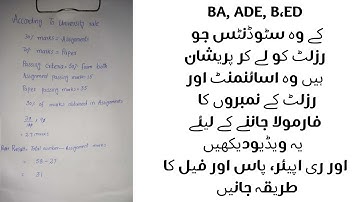 According to University rule
30% marks = Assignments
70% marks = Paper
Passing Criteria = 50% from both
Assignment passing marks = 15
Paper passing marks = 35
30% of marks obtained in Assignments
= 27 marks
Total number - Assignment marks
= 58 - 27
= 31
BA, ADE, B.ED
کے وہ سٹوڈنٹس جو
رزلٹ کو لے کر پریشان
ہیں وہ اسائنمنٹ اور
رزلٹ کے نمبروں کا
فارمولا جاننے کے لیئے
یہ ویڈیودیکھیں
اور ری اپیئر، پاس اور فیل کا
طریقہ جانیں